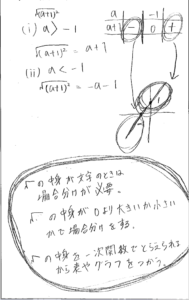 √(a+1)²
(i) a > -1
√(a+1)² = a+1
(ii) a < -1
√(a+1)² = -a-1
a | | -1 |
a+1 | - | 0 | +
√の中身が文字のときは
場合分けが必要。
√の中身が0より大きいか小さい
かで場合分けする。
√の中身を一次関数でとらえられる
から表やグラフをつかう。